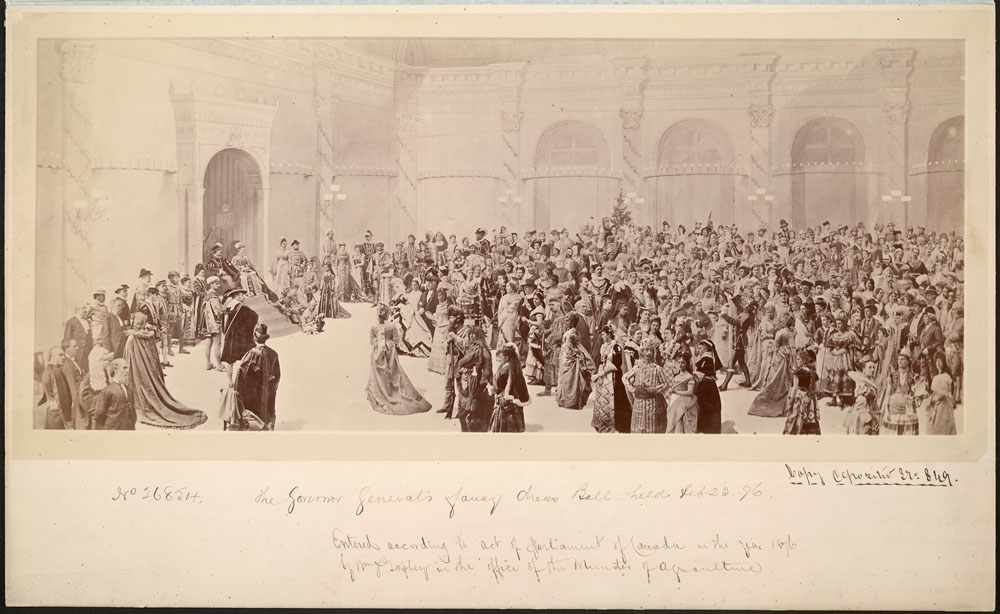 Copy Deposited No 849.
No 26854. The Governor General's fancy dress Ball held Feb 23. 76.
Entered according to act of Parliament of Canada in the year 1876
by Wm Topley in the office of the Minister of Agriculture